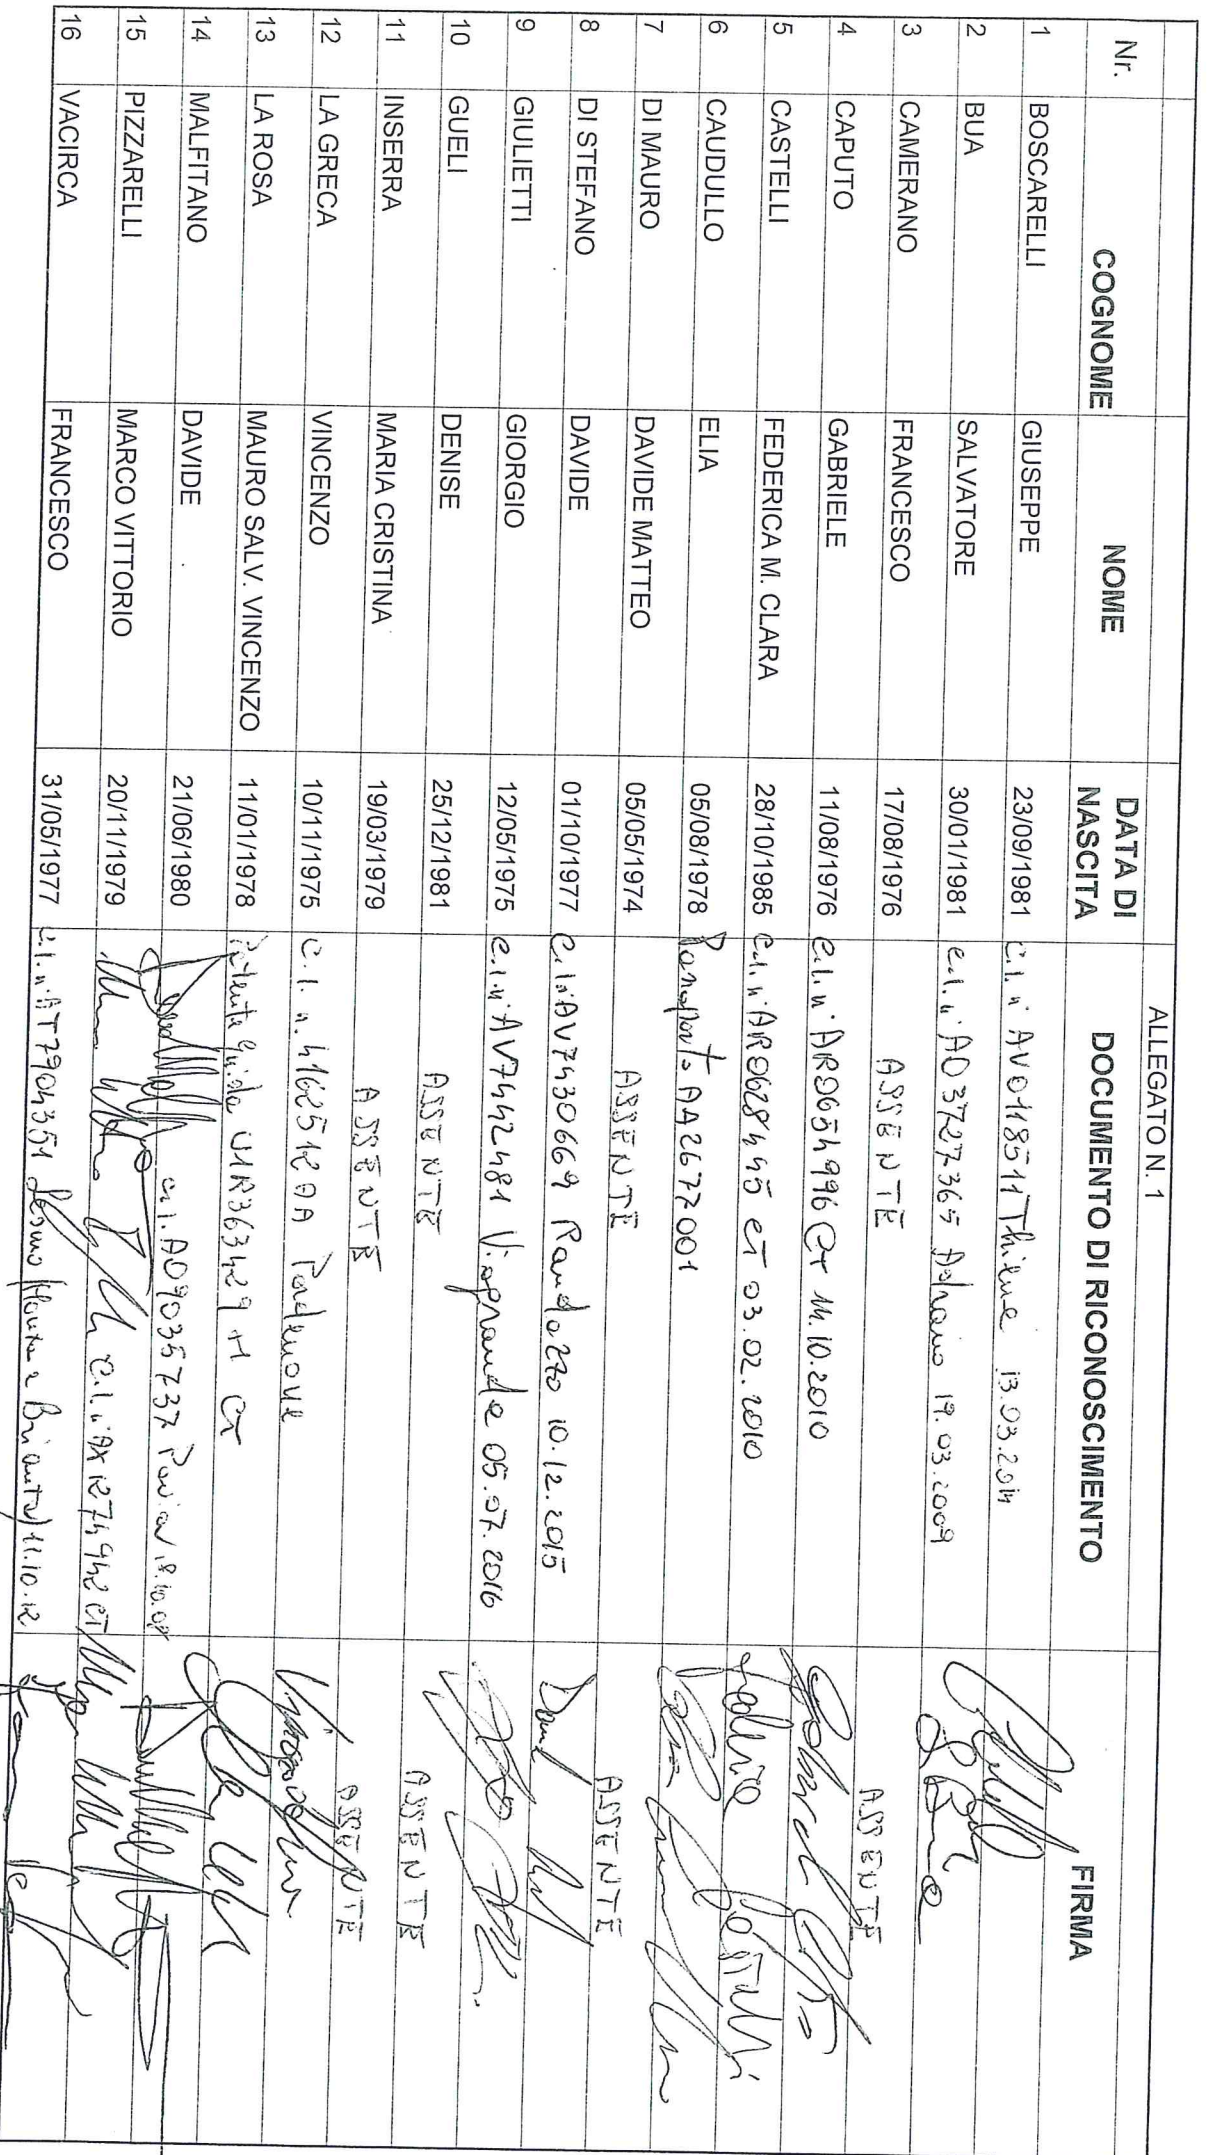 ALLEGATO N. 1
Nr. COGNOME NOME DATA DI NASCITA DOCUMENTO DI RICONOSCIMENTO FIRMA
1 BOSCARELLI GIUSEPPE 23/09/1981 C.I. n° AV0118511 Thiene 13.03.2014
2 BUA SALVATORE 30/01/1981 C.I. n° AO3727365 Adrano 19.03.2009
3 CAMERANO FRANCESCO 17/08/1976 ASSENTE ASSENTE
4 CAPUTO GABRIELE 11/08/1976 C.I. n° AR0654996 CT 11.10.2010
5 CASTELLI FEDERICA M. CLARA 28/10/1985 C.I. n° AR0628445 CT 03.02.2010
6 CAUDULLO ELIA 05/08/1978 AA2677001
7 DI MAURO DAVIDE MATTEO 05/05/1974 ASSENTE ASSENTE
8 DI STEFANO DAVIDE 01/10/1977 C.I. n° AV7430669 Randazzo 10.12.2015
9 GIULIETTI GIORGIO 12/05/1975 C.I. n° AV7442481 Viagrande 05.07.2016
10 GUELI DENISE 25/12/1981 ASSENTE ASSENTE
11 INSERRA MARIA CRISTINA 19/03/1979 ASSENTE ASSENTE
12 LA GRECA VINCENZO 10/11/1975 C.I. n. Pordenone
13 LA ROSA MAURO SALV. VINCENZO 11/01/1978 Patente guida CT
14 MALFITANO DAVIDE 21/06/1980 C.I. Pavia
15 PIZZARELLI MARCO VITTORIO 20/11/1979 C.I. n° CT
16 VACIRCA FRANCESCO 31/05/1977 C.I. n° AT7904351 Lesmo